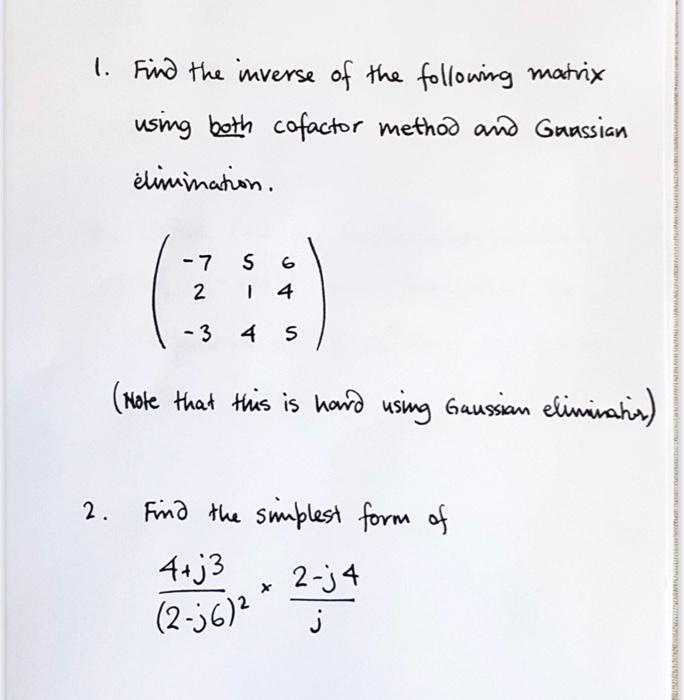 1. Find the inverse of the following matrix
using both cofactor method and Gaussian
elimination.
-7 5 6
2 1 4
-3 4 5
(Note that this is hard using Gaussian elimination)
2. Find the simplest form of
4+j3 / (2-j6)² × 2-j4 / j